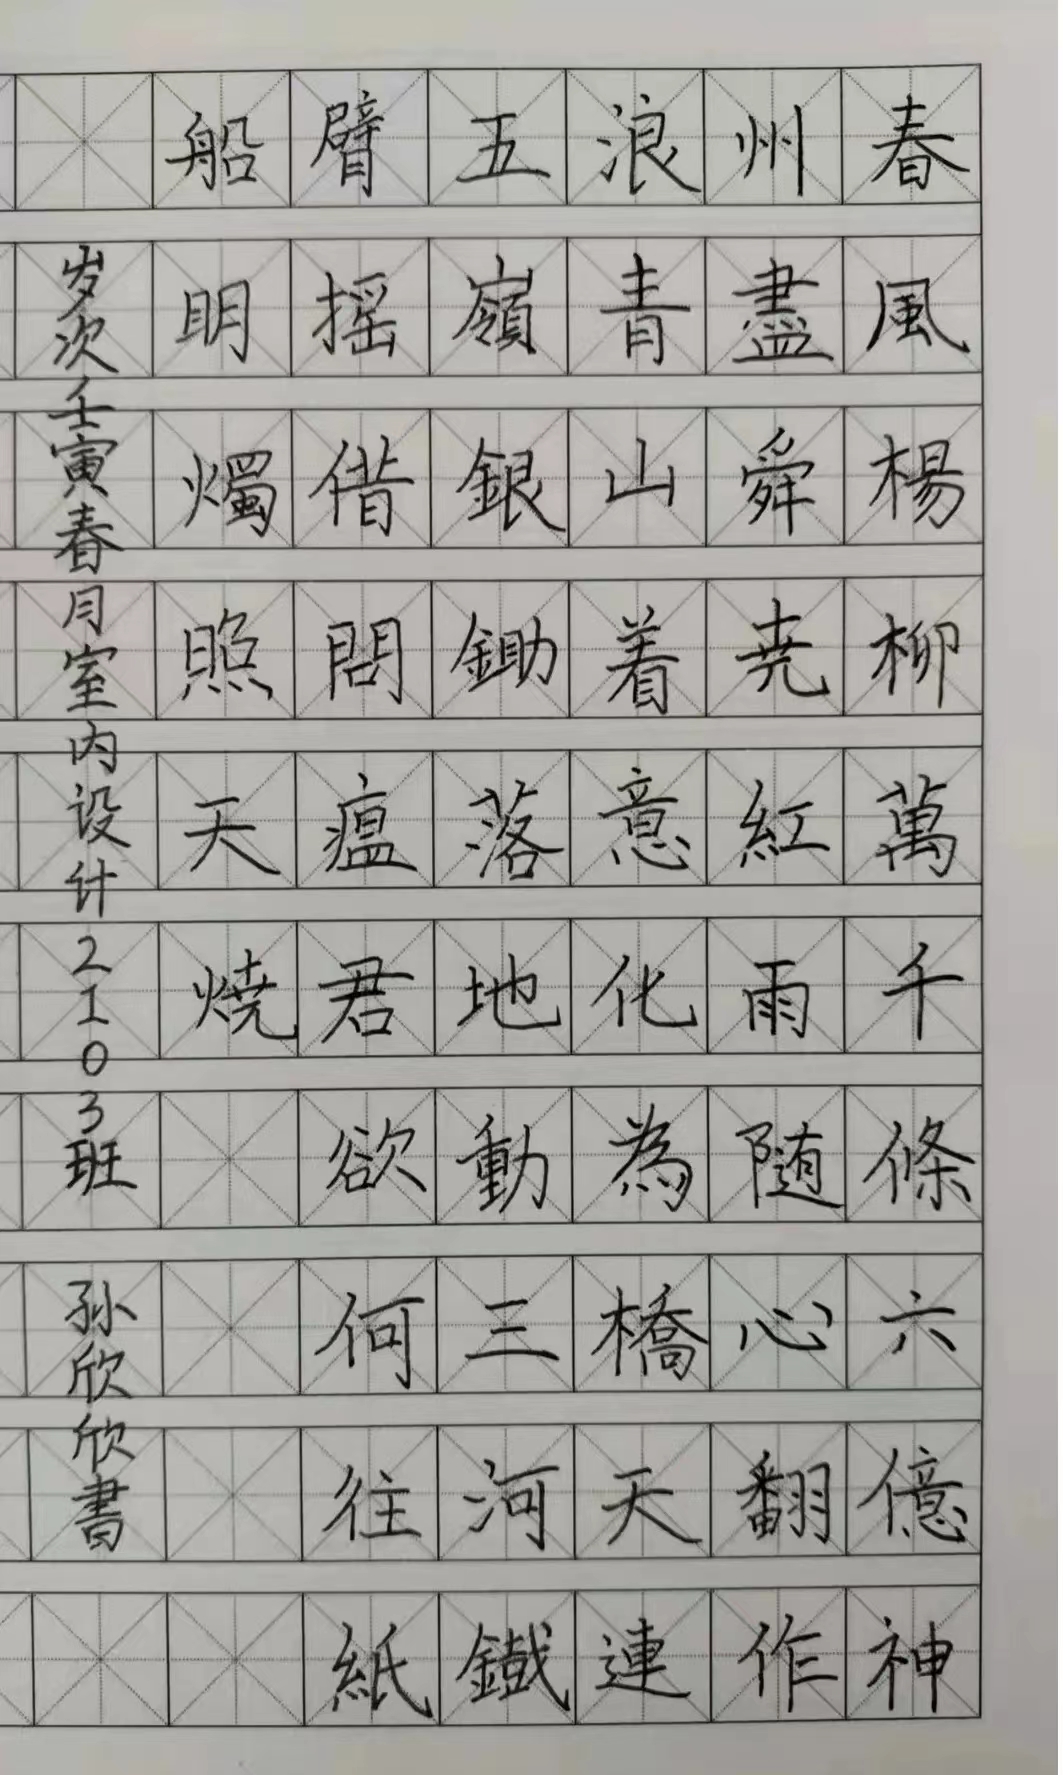 春風楊柳萬千條六億神
州盡舜尧紅雨随心翻作
浪青山着意化為橋天連
五嶺銀鋤落地動三河鐡
臂摇借問瘟君欲何往紙
船明燭照天燒
岁次壬寅春月室内设计2103班 孙欣欣書